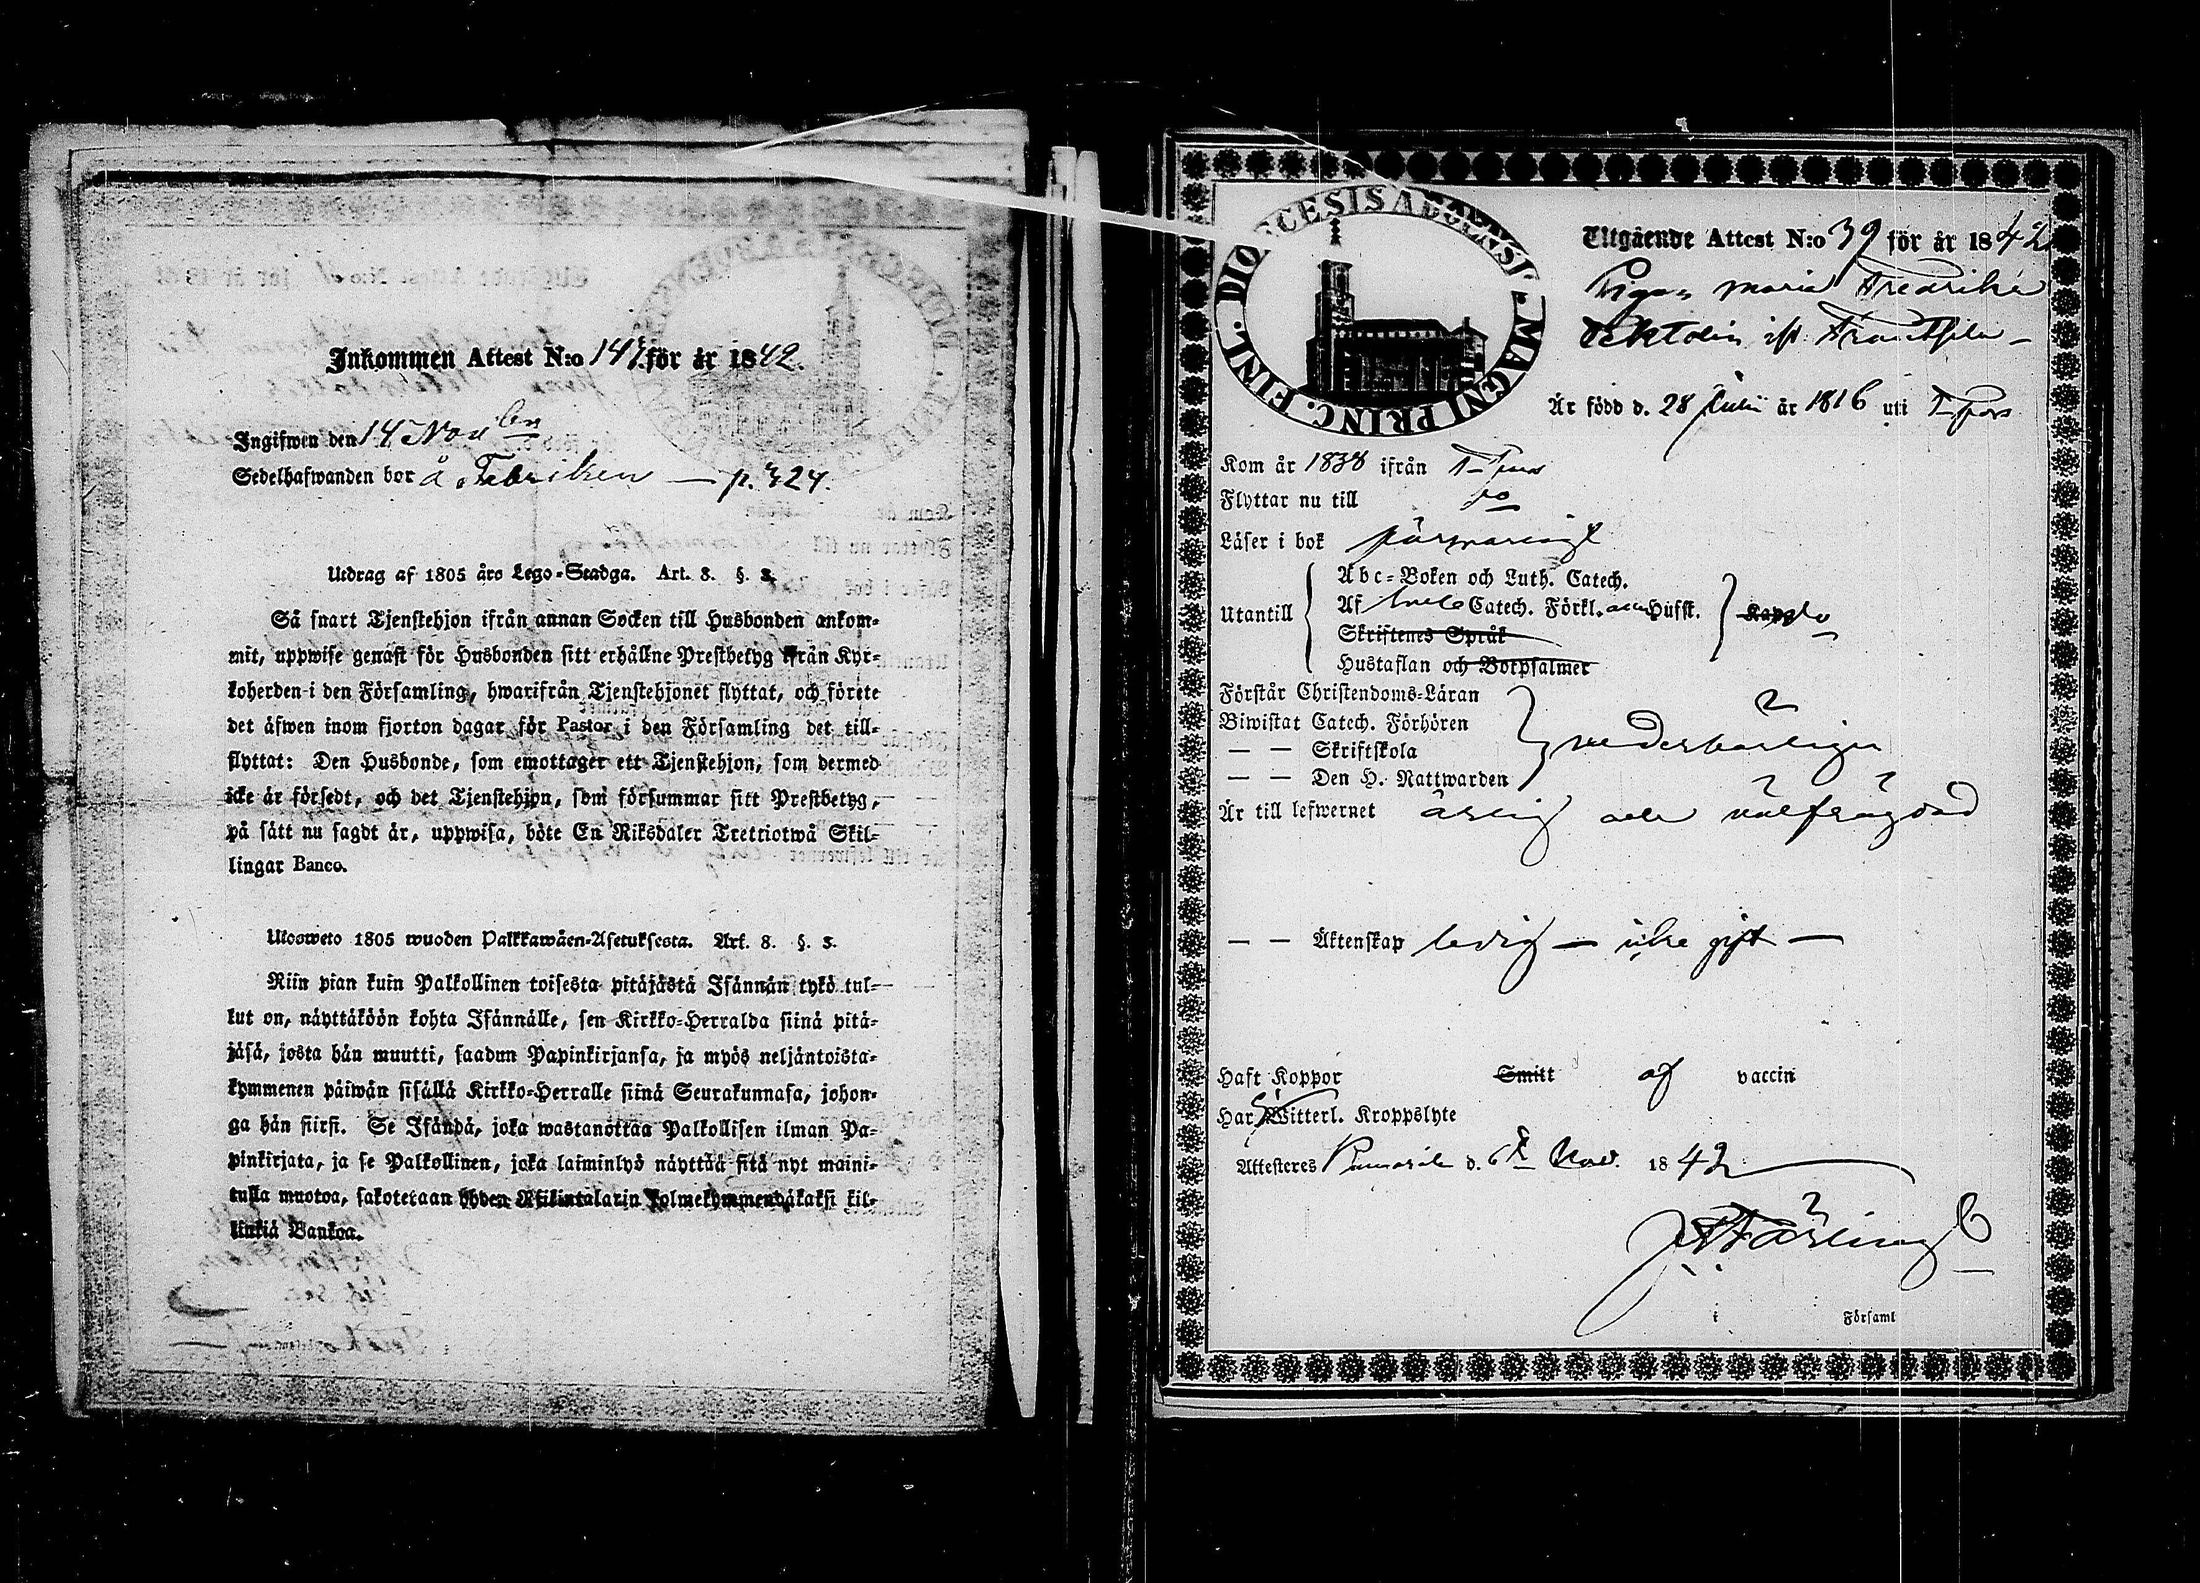 Inkommen Attest N:o 147 för år 1842.
Ingifwen den 14 Novbr
Sedelhafwanden bor å Fabriken — p. 324.
Utdrag af 1805 års Lego-Stadga. Art. 8. §. 3.
Så snart Tjenstehjon ifrån annan Socken till Husbonden ankom-
mit, uppwise genast för Husbonden sitt erhållne Prestbetyg ifrån Kyr-
koherden i den Församling, hwarifrån Tjenstehjonet flyttat, och förete
det äfwen inom fjorton dagar för Pastor i den Församling det till-
flyttat: Den Husbonde, som emottager ett Tjenstehjon, som dermed
icke är försedt, och det Tjenstehjon, som försummar sitt Prestbetyg,
på sätt nu sagdt är, uppwisa, böte En Riksdaler Trettiotwå Skil-
lingar Banco.
Ulosweto 1805 wuoden Palkkawäen-Asetuksesta. Art. 8. §. 3.
Niin pian kuin Palkollinen toisesta pitäjästä Isännän tykö tul-
lut on, näyttäköön kohta Isännälle, sen Kirkko-Herralda siinä pitä-
jäsä, josta hän muutti, saadun Papinkirjansa, ja myös neljäntoista-
kymmenen päiwän sisällä Kirkko-Herralle siinä Seurakunnasa, johon-
ga hän siirsi. Se Isändä, joka wastanottaa Palkollisen ilman Pa-
pinkirjata, ja se Palkollinen, joka laiminlyö näyttää sitä nyt maini-
tulla muotoa, sakotetaan yhden Riikintalarin kolmekymmendäkaksi kil-
linkiä Bankoa.
DIOECESIS ABOENSIS. MAGNI PRINC. FINL.
Utgående Attest N:o 39 för år 1842
Pigan Maria Fredrika
Är född d. 28 Julii år 1816 uti T-fors
Kom år 1838 ifrån T-fors
Flyttar nu till do
Läser i bok försvarligt
Utantill
Abc-Boken och Luth. Catech.
Af Catech. Förkl. Husst.
Skriftenes Språk
Hustaflan och Botpsalmer
Förstår Christendoms-Läran
Biwistat Catech. Förhören
— — Skriftskola
— — Den H. Nattwarden
vederbörligen
Är till lefwernet ärlig och välfrägdad
— — Äktenskap ledig — icke gift —
Haft Koppor Smitt af vaccin
Har Witterl. Kroppslyte
Attesteres d. Nov. 1842
i Församl